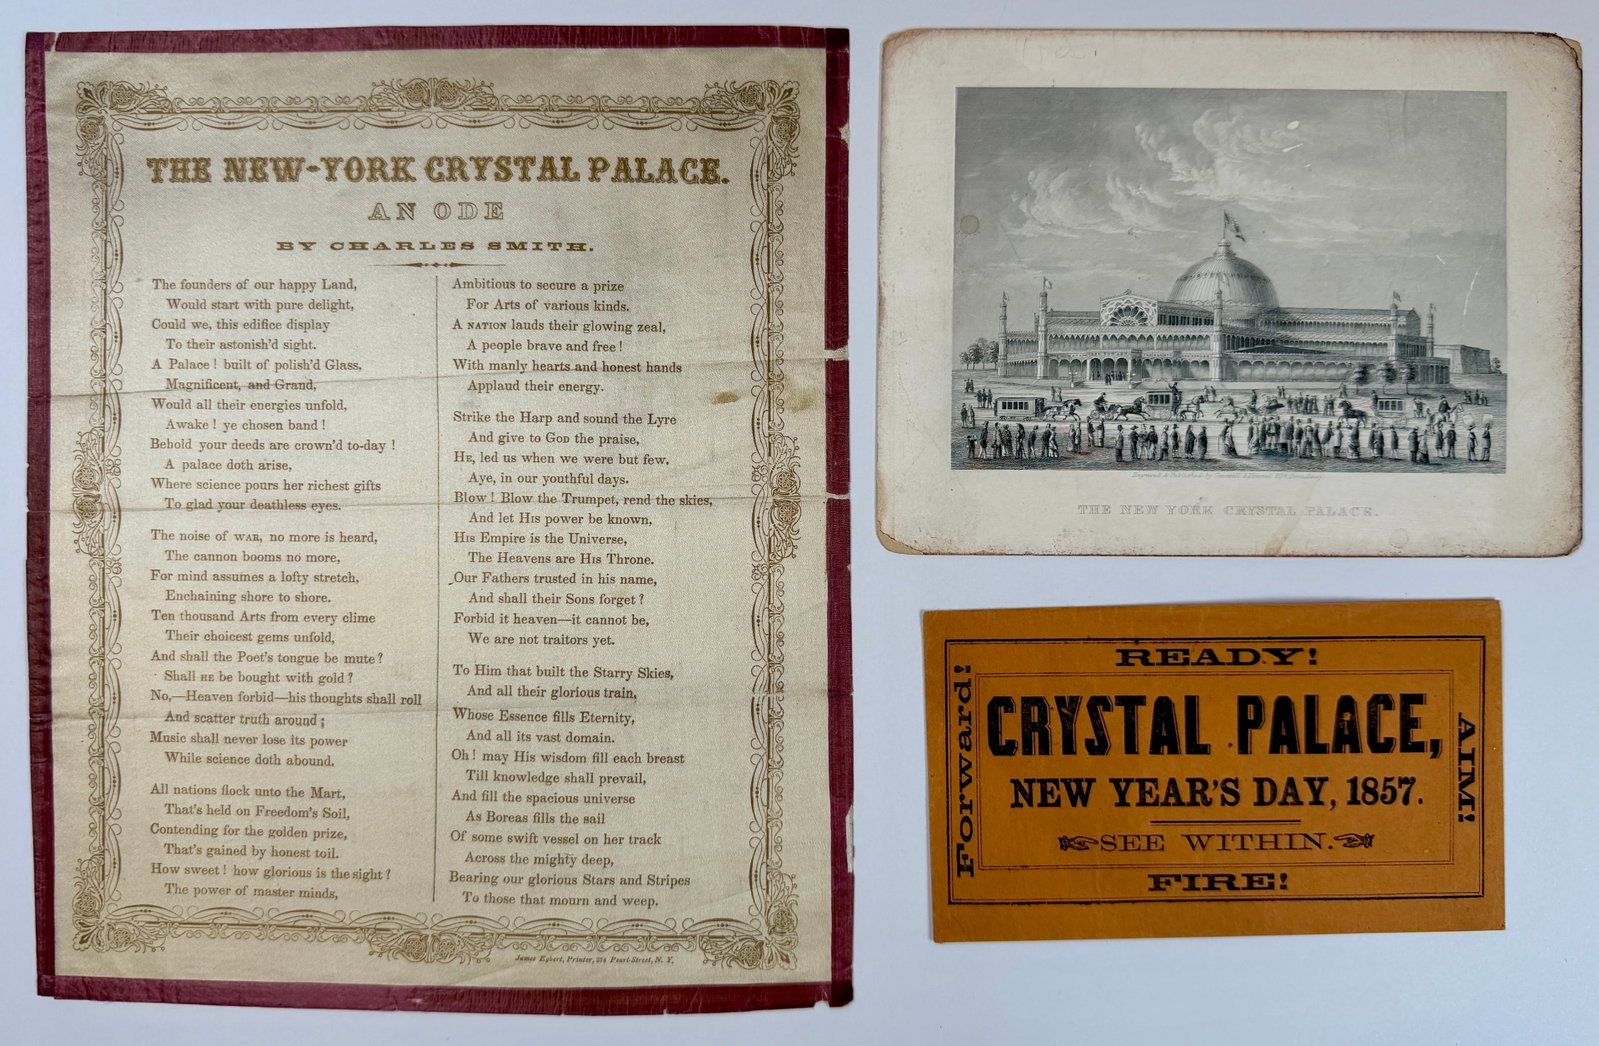 THE NEW-YORK CRYSTAL PALACE.
AN ODE
BY CHARLES SMITH.
The founders of our happy Land,
Would start with pure delight,
Could we, this edifice display
To their astonish'd sight.
A Palace! built of polish'd Glass,
Magnificent, and Grand,
Would all their energies unfold,
Awake! ye chosen band!
Behold your deeds are crown'd to-day!
A palace doth arise,
Where science pours her richest gifts
To glad your deathless eyes.
The noise of WAR, no more is heard,
The cannon booms no more,
For mind assumes a lofty stretch,
Enchaining shore to shore.
Ten thousand Arts from every clime
Their choicest gems unfold,
And shall the Poet's tongue be mute?
Shall HE be bought with gold?
No,—Heaven forbid—his thoughts shall roll
And scatter truth around;
Music shall never lose its power
While science doth abound.
All nations flock unto the Mart,
That's held on Freedom's Soil,
Contending for the golden prize,
That's gained by honest toil.
How sweet! how glorious is the sight?
The power of master minds,
Ambitious to secure a prize
For Arts of various kinds.
A NATION lauds their glowing zeal,
A people brave and free!
With manly hearts and honest hands
Applaud their energy.
Strike the Harp and sound the Lyre
And give to GOD the praise,
HE, led us when we were but few,
Aye, in our youthful days.
Blow! Blow the Trumpet, rend the skies,
And let HIS power be known,
HIS Empire is the Universe,
The Heavens are HIS Throne.
Our Fathers trusted in his name,
And shall their Sons forget?
Forbid it heaven—it cannot be,
We are not traitors yet.
To Him that built the Starry Skies,
And all their glorious train,
Whose Essence fills Eternity,
And all its vast domain.
Oh! may His wisdom fill each breast
Till knowledge shall prevail,
And fill the spacious universe
As Boreas fills the sail
Of some swift vessel on her track
Across the mighty deep,
Bearing our glorious Stars and Stripes
To those that mourn and weep.
James Egbert, Printer, 374 Pearl-Street, N. Y.
Engraved & Published by
THE NEW YORK CRYSTAL PALACE.
READY!
Forward!
CRYSTAL PALACE,
NEW YEAR'S DAY, 1857.
SEE WITHIN.
AIM!
FIRE!